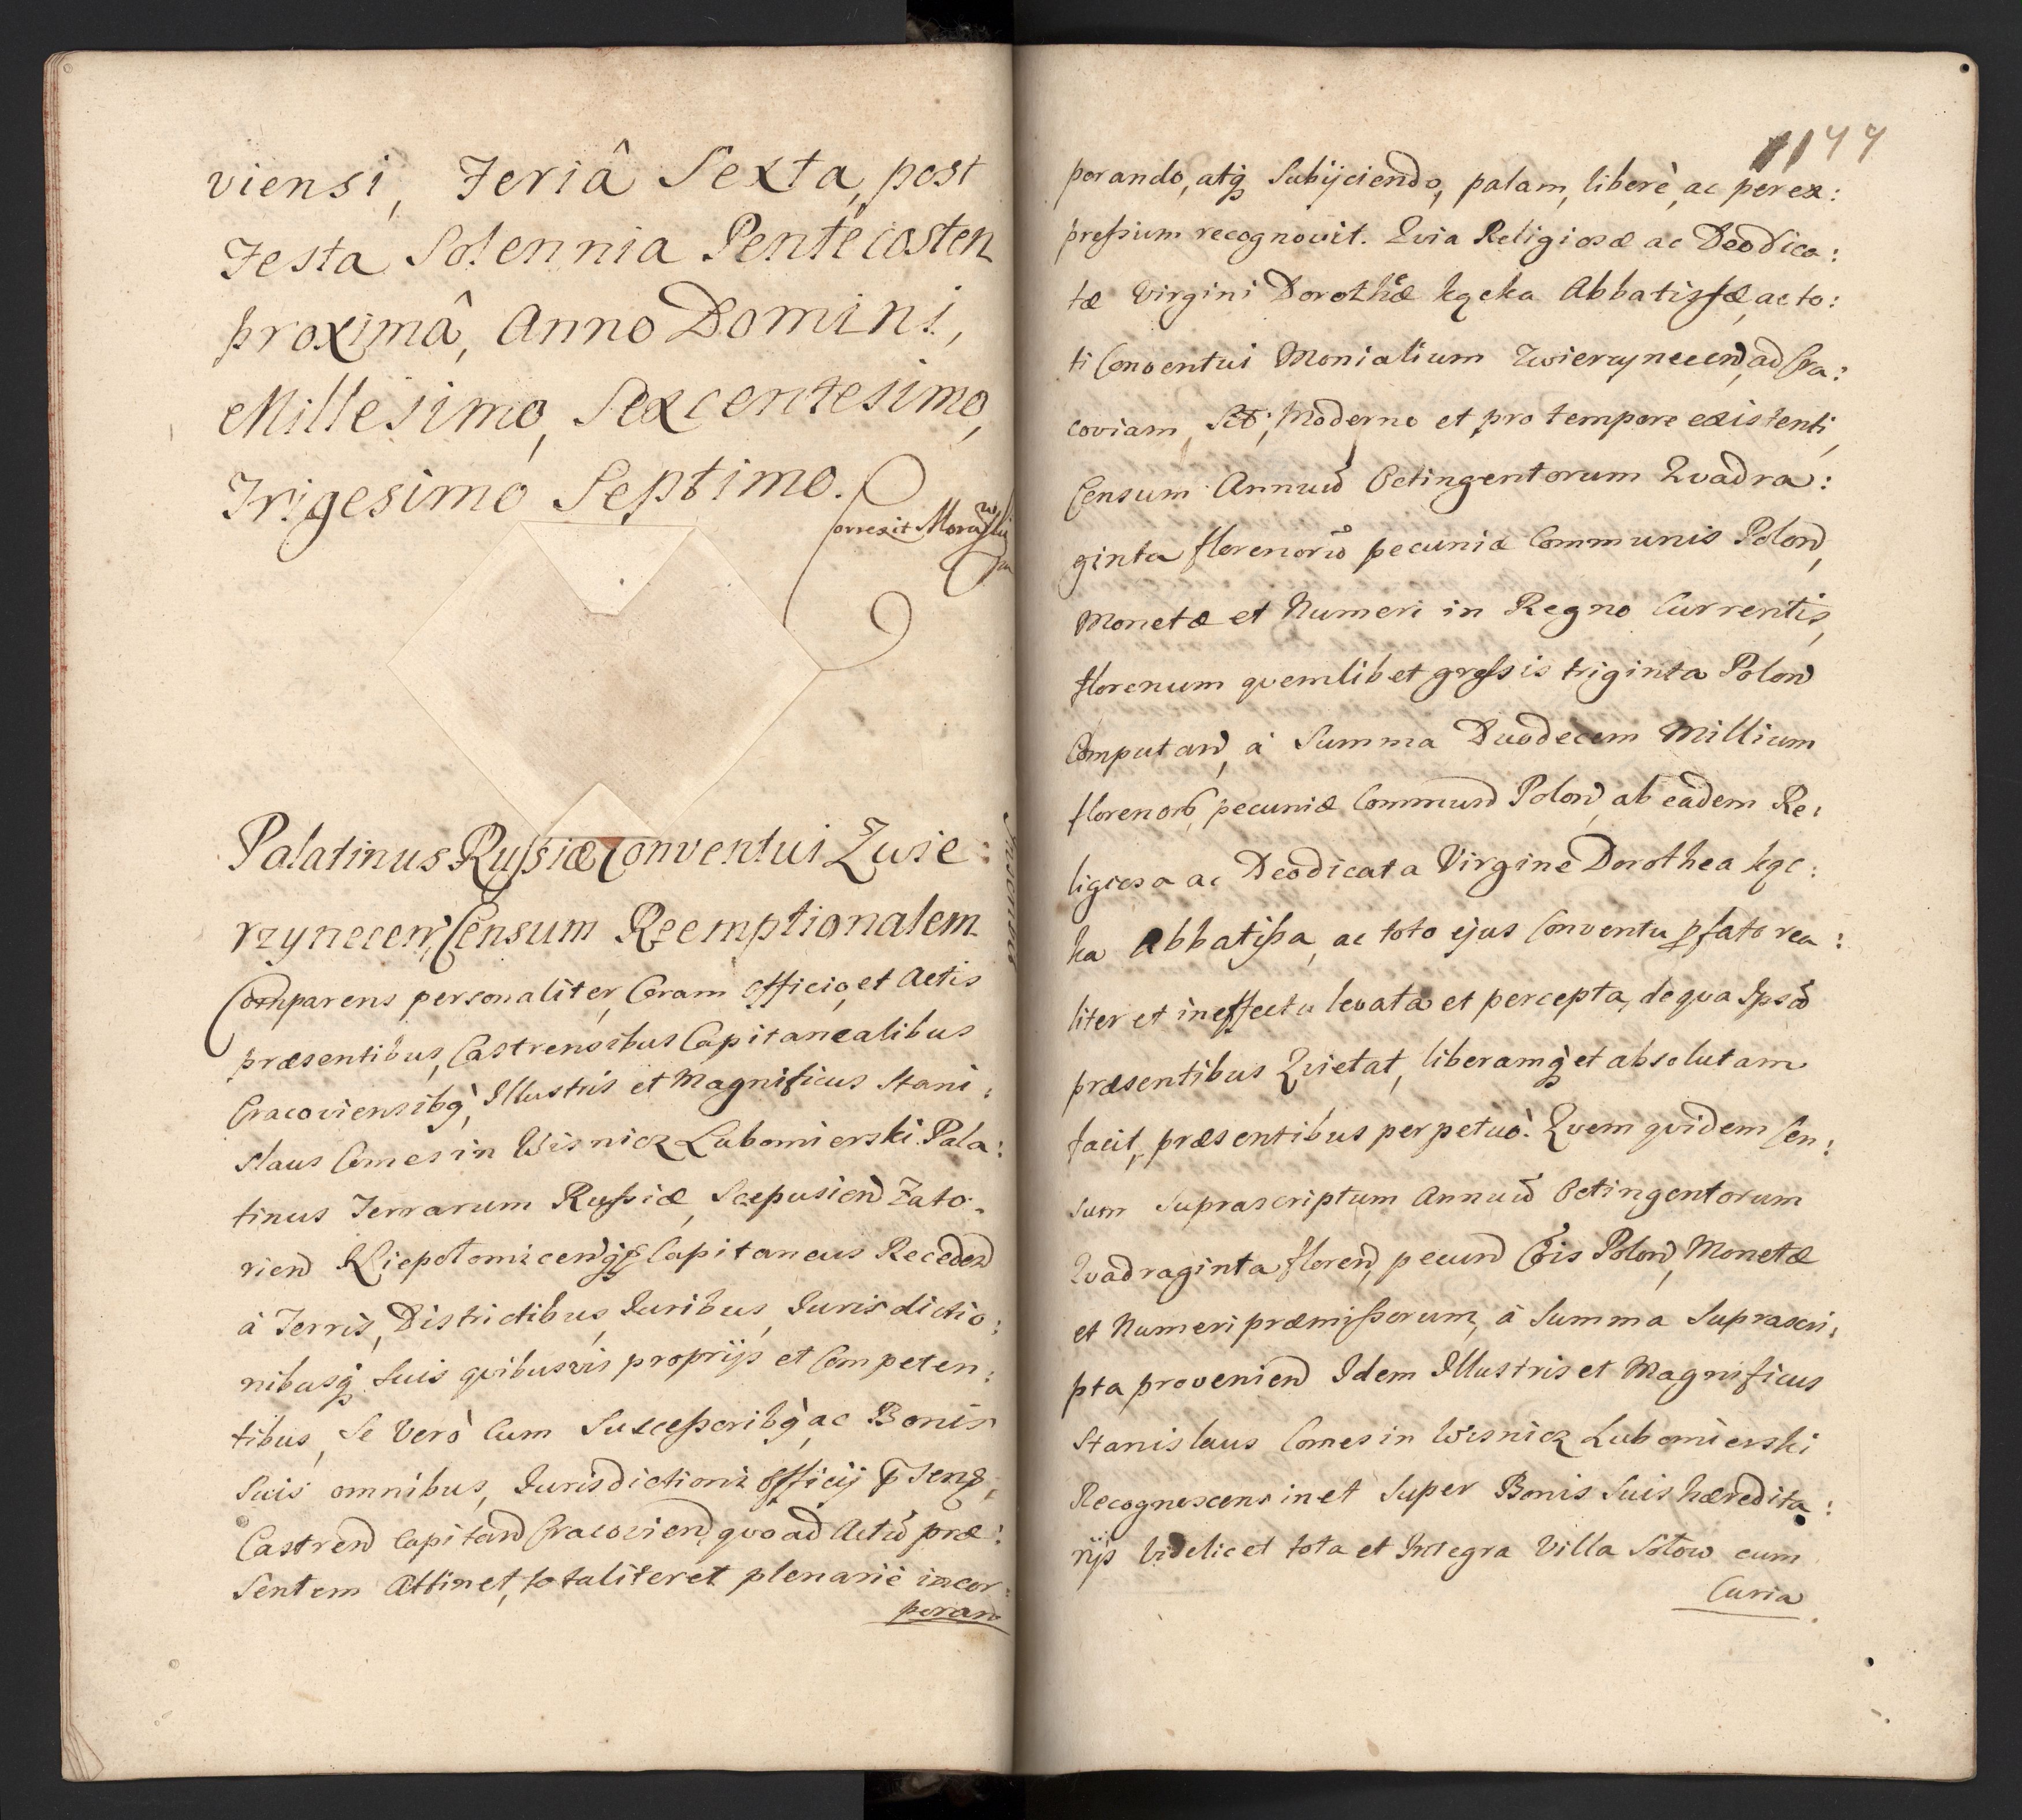 viensi, Feriâ Sexta, post
Festa Solennia Pentecosten
proximâ, Anno Domini,
Millesimo, Sexcentesimo,
Trigesimo Septimo.
Correxit
Palatinus Russiæ Conventui Zwie:
rzynecen, Censum Reemptionalem
Comparens personaliter, Coram officio, et Actis
præsentibus, Castrensibus Capitanealibus
Cracoviensibq, Illustris et Magnificus Stani:
slaus Comes in Wisnicz Lubomierski Pala:
tinus Terrarum Russiæ, Scepusien Zato:
rien Niepolomicenqз Capitaneus Receden
à Terris, Districtibus, Iuribus, Iurisdictio:
nibusq Suis qvibusvis proprijs et Competen:
tibus, Se Verò Cum Successoribq ac Bonis
Suis omnibus, Iurisdictioni officij
Castren Capitan Cracovien, qvoad Actũ præ:
sentem Attinet, totaliter et plenarie incor:
poran
1177
porando, atq Subijciendo, palam, liberè, ac per ex:
pressum recognovit. Qvia Religiosæ ac Deodica:
tæ Virgini Dorothæ kącka Abbatissæ, ac to:
ti Conventui Monialium Zwierzynecen, ad Cra:
coviam, Moderno et pro tempore existenti,
Censum Annuũ Octingentorum Qvadra:
ginta florenorũ pecuniæ Communis Polon,
Monetæ et Numeri in Regno Currentis,
florenum qvemlibet grossis triginta Polon
Computan, à Summa Duodecem Millium
florenorũ, pecuniæ Commun Polon, ab eâdem Re:
ligiosa ac Deodicata Virgine Dorothea kąc:
ka Abbatissa, ac toto ejus Conventu pfato rea:
liter et in effectu levata et percepta, de qva Ipsũ
præsentibus Qvietat, liberamq et absolutam
facit, præsentibus perpetuò. Qvem qvidem Cen:
sum Suprascriptum Annuũ Octingentorum
Qvadraginta floren, pecun Cõis Polon, Monetæ
et Numeri præmissorum, à Summa Suprascri:
pta provenien Idem Illustris et Magnificus
Stanislaus Comes in Wisnicz Lubomierski
Recognoscens in et Super Bonis Suis hæredita:
rijs Videlicet tota et Integra Villa Sołow cum
Curia